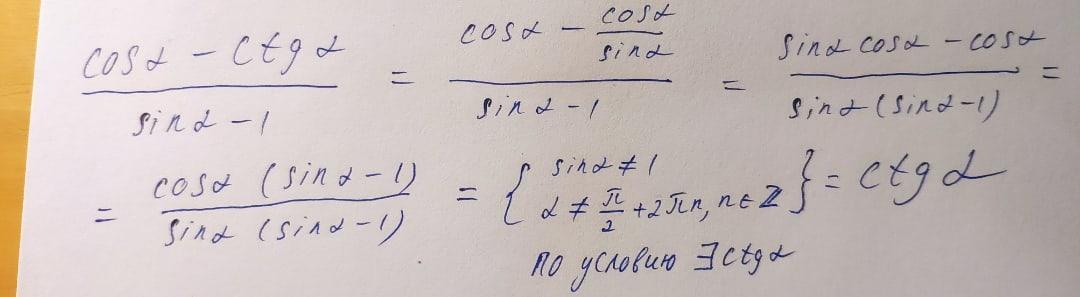 (cos α − ctg α)/(sin α − 1) = (cos α − cos α/sin α)/(sin α − 1) = (sin α cos α − cos α)/(sin α (sin α − 1)) =
= (cos α (sin α − 1))/(sin α (sin α − 1)) = { sin α ≠ 1
α ≠ π/2 + 2πn, n ∈ Z } = ctg α
по условию ∃ ctg α